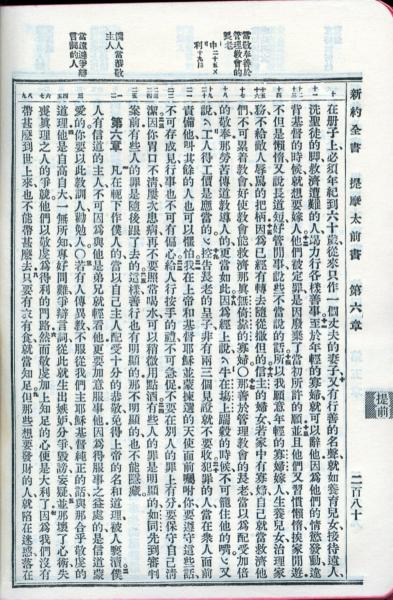 新約全書 提摩太前書 第六章
提前
二百八十
當敬奉善於
管理教會的
長老
僕人當恭敬
主人
在册子上必須年紀到六十歲從來只作一個丈夫的妻子、又有行善的名聲、就如養育兒女、接待遠人、
洗聖徒的脚、救濟遭難的人、竭力行各樣善事至於年輕的寡婦、就可以辭他因為他們的情慾發動、違
背基督的時候就想要嫁人他們被定罪是因廢棄了當初所許的願並且他們又習慣懶惰、挨家閒遊、
不但是懶惰又說長道短、好管閒事、說些不當說的話所以我願意年輕的寡婦嫁人生養兒女、治理家
務不給敵人辱罵的把柄因為已經有轉去隨從撒但的信主的婦女若家中有寡婦、自己就當救濟他
們不可累着教會好使教會能救濟那眞無倚靠的寡婦○那善於管理教會的長老當以為配受加倍
的敬奉、那勞苦傳道教導人的更當如此因為經上說、牛在場上踹穀的時候不可籠住他的嘴又
說、工人得工價是應當的、控告長老的呈子、非有兩三個見證就不要收犯罪的人當在衆人面前
責備他、叫其餘的人也可以懼怕我在上帝和基督耶穌並蒙揀選的天使面前囑咐你要遵守這些話、
不可存成見行事也不可有偏心給人行按手的禮、不可急促不要在別人的罪上有分要保守自己清
潔因你胃口不清屢次患病、再不要照常喝水、可以稍微用點酒有些人的罪是明顯的、如同先到審判
案前有些人的罪是隨後跟了去的這樣善行也有明顯的那不明顯的也不能隱藏
第六章 凡在軛下作僕人的當以自己主人配受十分的恭敬免得上帝的名和道理被人褻瀆僕
人有信道的主人不可因為與他是弟兄就輕看他更要加意服事他因為得服事之益處的是信道蒙
愛的、你要以此教訓人、勸勉人○若有人傳異教、不服從我們主耶穌基督純正的話、與那合乎敬虔的
道理他是自高自大、一無所知、專好問難、爭辯言詞、從此就生出嫉妒、分爭、毀謗、妄疑並那壞了心術、失
喪眞理之人的爭競、他們以敬虔為得利的門路然而敬虔加上知足的心便是大利了因為我們沒有
帶甚麼到世上來、也不能帶甚麼去只要有衣有食、就當知足但那些想要發財的人就陷在迷惑落在